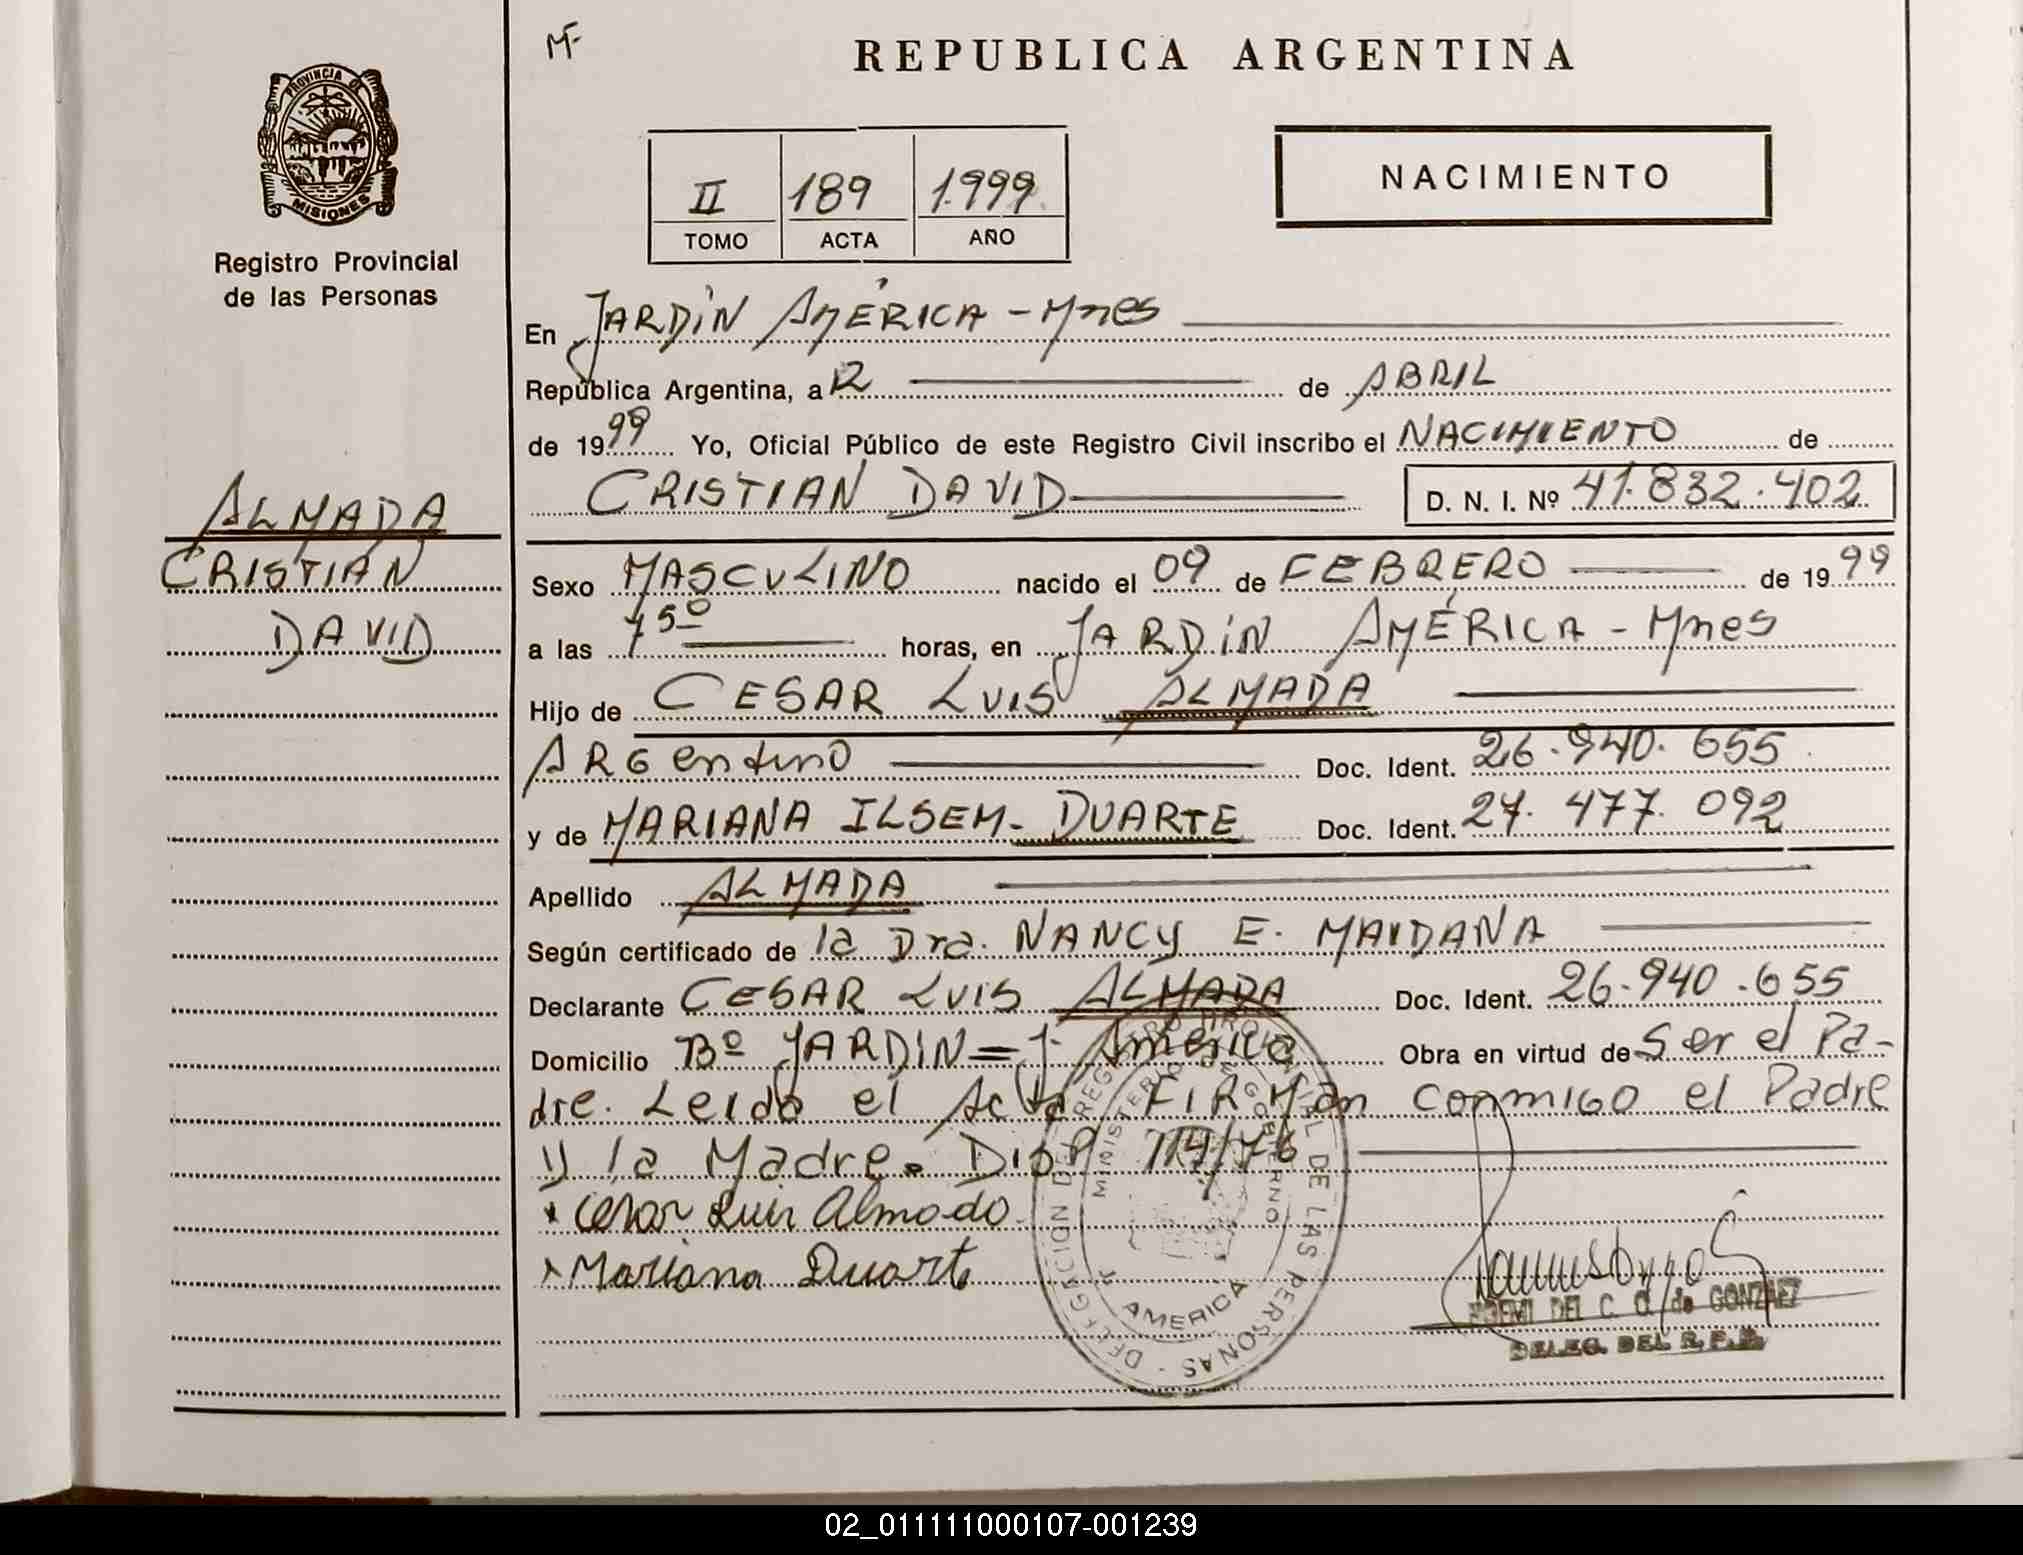 MF
REPUBLICA ARGENTINA
PROVINCIA DE
MISIONES
Registro Provincial
de las Personas
II 189 1.999
TOMO ACTA AÑO
NACIMIENTO
En JARDIN AMÉRICA - Mnes
República Argentina, a 12 de ABRIL
de 1999 Yo, Oficial Público de este Registro Civil inscribo el NACIMIENTO de
CRISTIAN DAVID D. N. I. Nº 41.832.402
ALMADA
CRISTIAN
DAVID
Sexo MASCULINO nacido el 09 de FEBRERO de 1999
a las horas, en JARDIN AMÉRICA - Mnes
Hijo de CESAR LUIS ALMADA
ARGentino Doc. Ident. 26.940.655
y de MARIANA ILSEM. DUARTE Doc. Ident. 27.477.092
Apellido ALMADA
Según certificado de la Dra. NANCY E. MAIDANA
Declarante CESAR LUIS ALMADA Doc. Ident. 26.940.655
Domicilio Bº JARDIN = J. América Obra en virtud de Ser el Pa-
dre. Leida el Acta FIRMan conmigo el Padre
y la Madre. 114/76
x Cesar Luis Almada
x Mariana Duarte
DELEGACION DEL REGISTRO PROVINCIAL DE LAS PERSONAS
MINISTERIO DE GOBIERNO
J. AMERICA
NOEMI DEL C. O. de GONZALEZ
DELEG. DEL R. P. P.
02_011111000107-001239